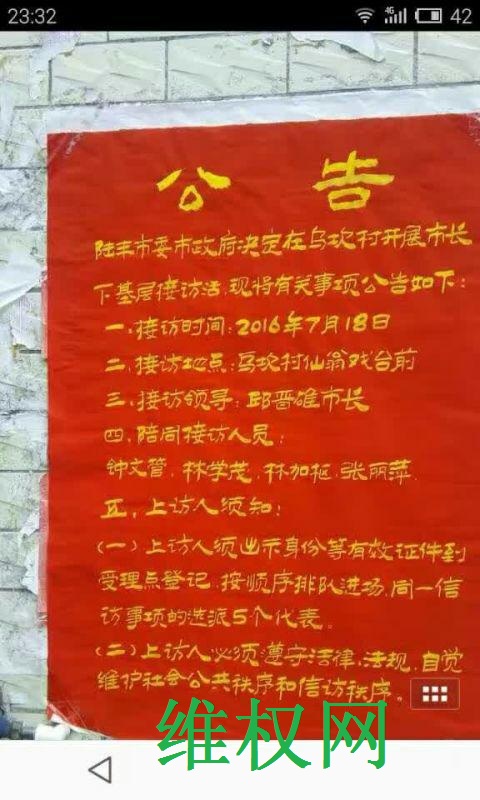 23:32
4G
42
公告
陆丰市委市政府决定在乌坎村开展市长
下基层接访活,现将有关事项公告如下:
一、接访时间:2016年7月18日
二、接访地点:乌坎村仙翁戏台前
三、接访领导:邱晋雄市长
四、陪同接访人员:
钟文管、林学茂、林加枢、张丽萍
五、上访人须知:
(一)上访人须出示身份等有效证件到
受理点登记,按顺序排队进场,同一信
访事项的选派5个代表。
(二)上访人必须遵守法律、法规,自觉
维护社会公共秩序和信访秩序。
维权网